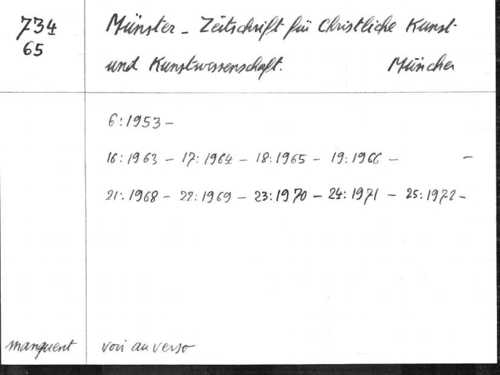 734 Münster - Zeitschrift für Christliche Kunst-
65 und Kunstwissenschaft. München
6:1953 -
16:1963 - 17:1964 - 18:1965 - 19:1966 - -
21:1968 - 22:1969 - 23:1970 - 24:1971 - 25:1972 -
manquent voir au verso